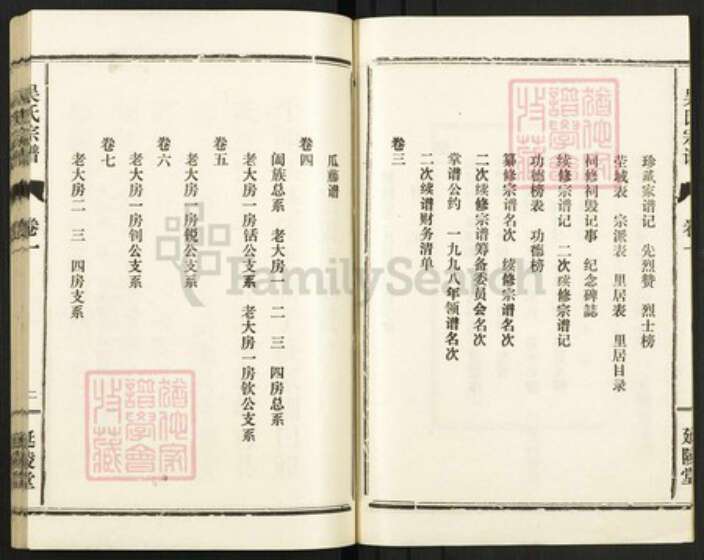 珍藏家谱记 先烈赞 烈士榜
茔域表 宗派表 里居表 里居目录
祠修祠毁记事 纪念碑誌
续修宗谱记 二次续修宗谱记
功德榜表 功德榜
纂修宗谱名次 续修宗谱名次
二次续修宗谱筹备委员会名次
掌谱公约 一九九八年领谱名次
二次续谱财务清单
卷三
瓜藤谱
卷四
阖族总系 老大房一 二 三 四房总系
老大房一房铦公支系 老大房一房钦公支系
卷五
老大房一房锐公支系
卷六
老大房一房钊公支系
卷七
老大房二 三 四房支系
吴氏宗谱 卷一 延陵堂
吴氏宗谱 卷一 二 延陵堂
FamilySearch